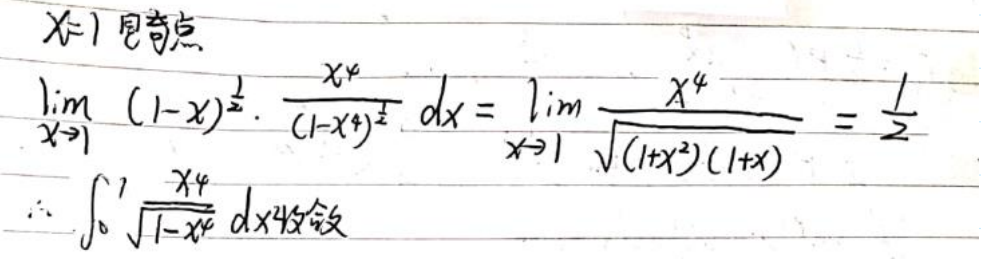 x=1是奇点
lim_{x→1} (1-x)^{\frac{1}{2}} · \frac{x^4}{(1-x^4)^{\frac{1}{2}}} dx = lim_{x→1} \frac{x^4}{\sqrt{(1+x^2)(1+x)}} = \frac{1}{2}
∴ ∫_0^1 \frac{x^4}{\sqrt{1-x^4}} dx收敛